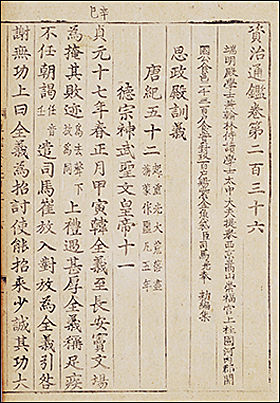 辛巳
資治通鑑卷第二百三十六
端明殿學士兼翰林侍讀學士太中大夫提擧西京嵩山崇福宮上柱國河內郡開
國公食邑二千二百戶食實封百戶賜紫金魚袋臣司馬光奉 敕編集
思政殿訓義
唐紀五十二 起重光大荒落盡旃蒙作噩凡五年
德宗神武聖文皇帝十一
貞元十七年春正月甲寅韓全義至長安竇文場
為掩其敗迹 為去聲下故為同 上禮遇甚厚全義稱足疾
不任朝謁 任音壬 遣司馬崔放入對放為全義引咎
謝無功上曰全義為招討使能招來少誠其功大